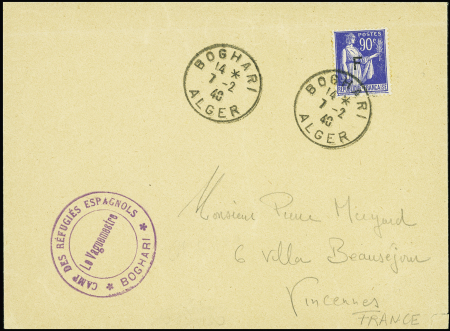 BOGHARI
14 *
7 -2
40
ALGER
POSTES
90c
F
RÉPUBLIQUE FRANÇAISE
BOGHARI
14 *
7 -2
40
ALGER
CAMP DES RÉFUGIÉS ESPAGNOLS
Le Vaguemestre
* BOGHARI *
Monsieur Pierre
6 villa Beauséjour
Vincennes
FRANCE